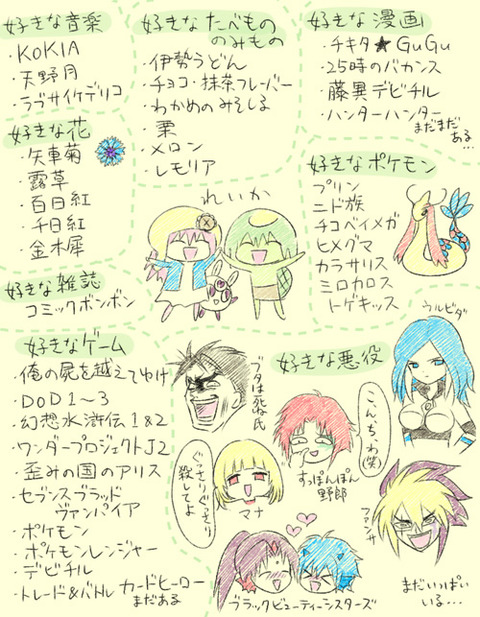 好きな音楽
・KOKIA
・天野月
・ラブサイケデリコ
好きな花
・矢車菊
・露草
・百日紅
・千日紅
・金木犀
好きな雑誌
コミックボンボン
好きなたべもの
のみもの
・伊勢うどん
・チョコ・抹茶フレーバー
・わかめのみそしる
・栗
・メロン
・レモリア
好きな漫画
・チキタ★GuGu
・25時のバカンス
・藤異デビチル
・ハンターハンター
まだまだ
ある…
好きなポケモン
プリン
ニド族
チコベイメガ
ヒメグマ
カラサリス
ミロカロス
トゲキッス
れいか
好きなゲーム
・俺の屍を越えてゆけ
・DOD1~3
・幻想水滸伝1&2
・ワンダープロジェクトJ2
・歪みの国のアリス
・セブンスブラッド
ヴァンパイア
・ポケモン
・ポケモンレンジャー
・デビチル
・トレード&バトル カードヒーロー
まだある
好きな悪役
ブタは死ね氏
ウルビダ
こんちわ(笑)
すっぽんぽん
野郎
ぐっそりぐっそり
殺してよ
マナ
ファンサ
ブラックビューティーシスターズ
まだいっぱい
いる…